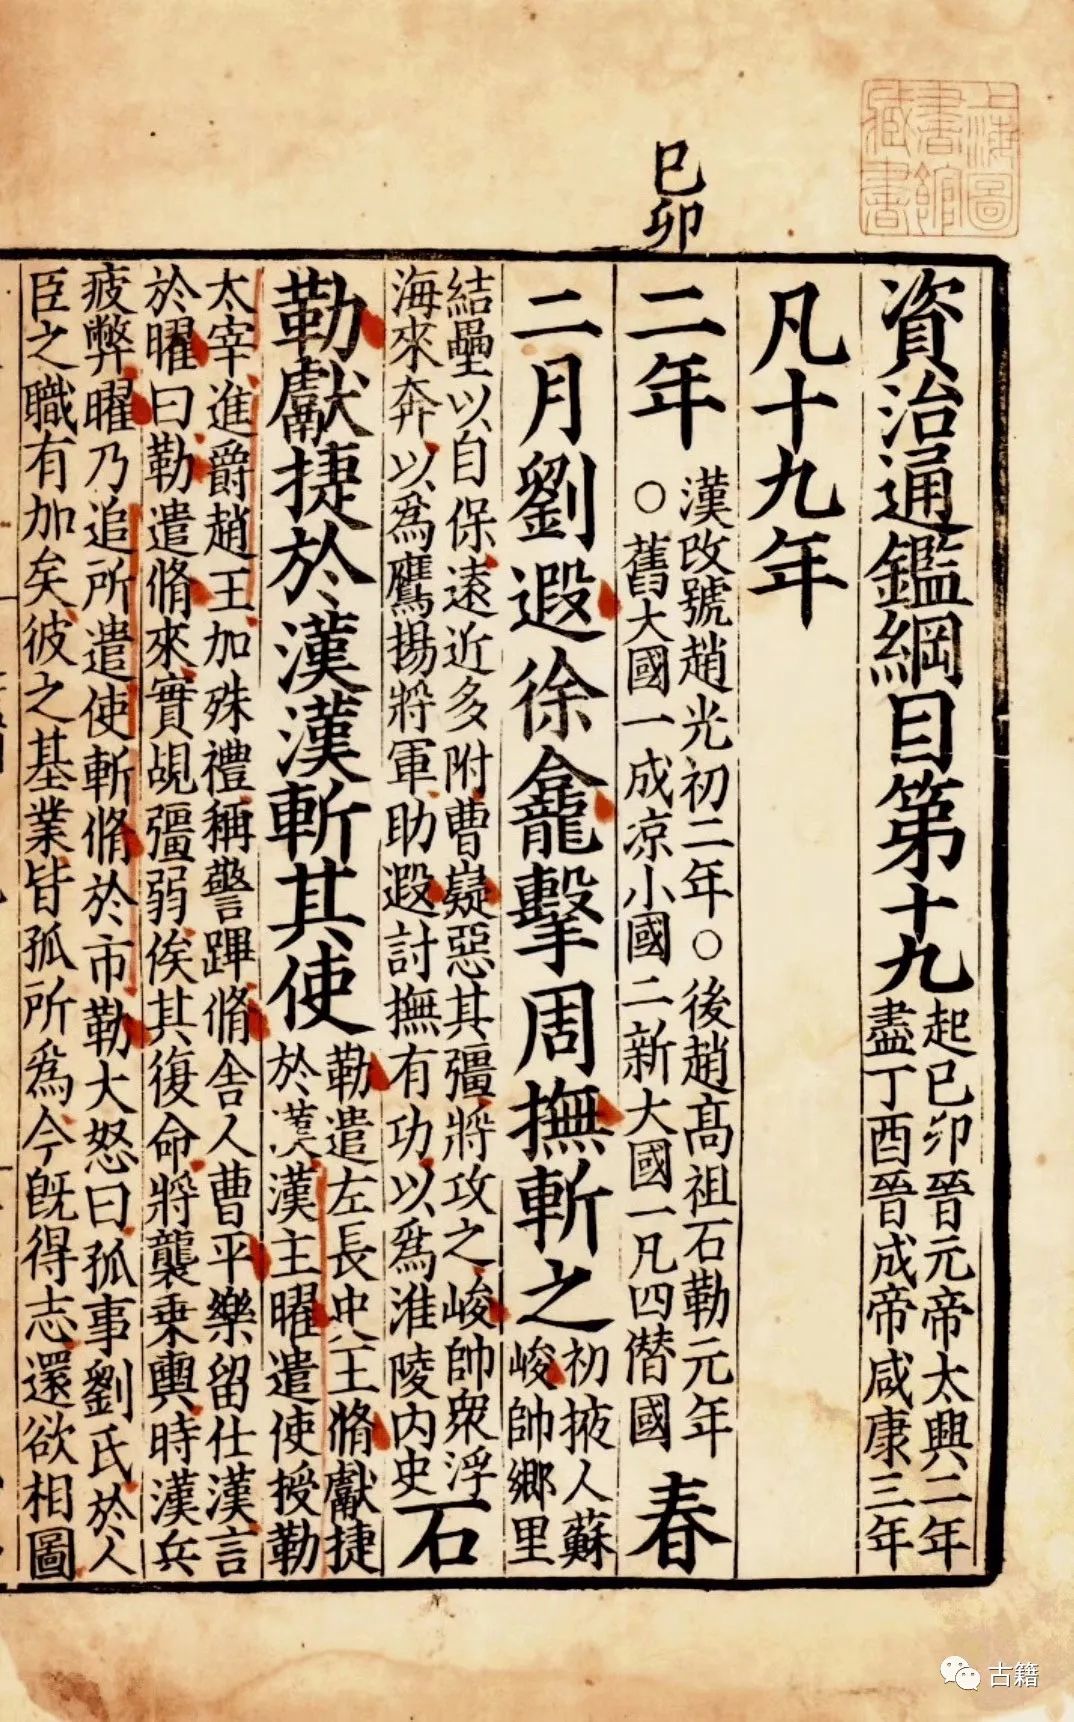 上海圖
書館
藏書
資治通鑑綱目第十九
起己卯晉元帝太興二年
盡丁酉晉成帝咸康三年
凡十九年
己卯
二年
漢改號趙光初二年○後趙高祖石勒元年
○舊大國一成凉小國二新大國一凡四僭國
春
二月劉遐徐龕擊周撫斬之
初掖人蘇
峻帥鄉里
結壘以自保遠近多附曹嶷惡其彊將攻之峻帥衆浮
海來奔以爲鷹揚將軍助遐討撫有功以爲淮陵内史
石
勒獻捷於漢漢斬其使
勒遣左長史王脩獻捷
於漢漢主曜遣使授勒
太宰進爵趙王加殊禮稱警蹕脩舍人曹平樂留仕漢言
於曜曰勒遣脩來實覘彊弱俟其復命將襲乗輿時漢兵
疲弊曜乃追所遣使斬脩於市勒大怒曰孤事劉氏於人
臣之職有加矣彼之基業皆孤所爲今既得志還欲相圖
古籍